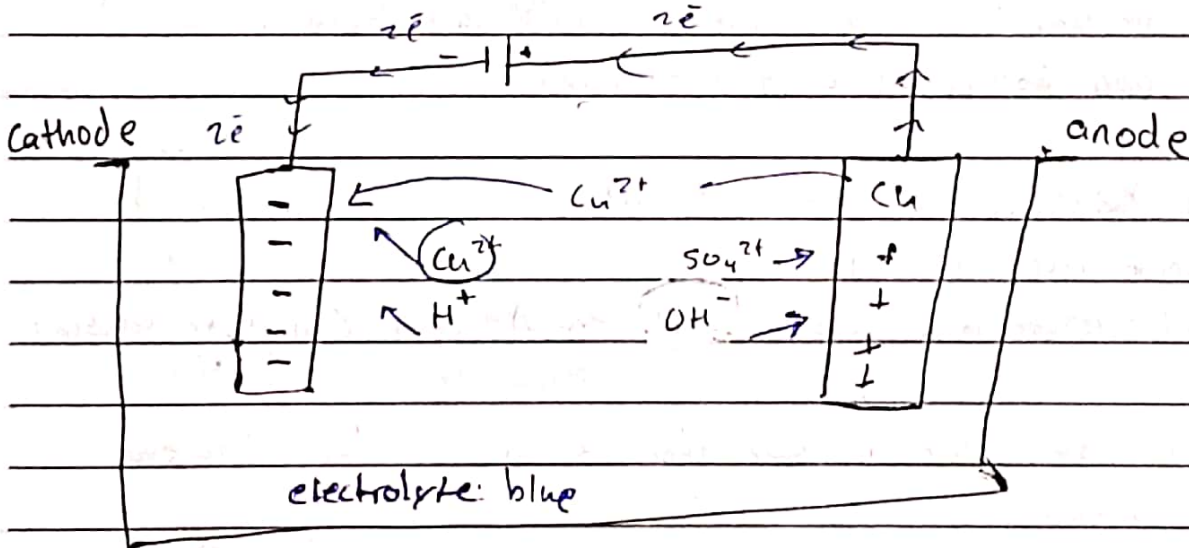 2ē 2ē
- +
cathode 2ē anode
- Cu²⁺ Cu
- Cu²⁺ SO₄²⁺ +
- H⁺ OH⁻ +
- +
- +
electrolyte: blue